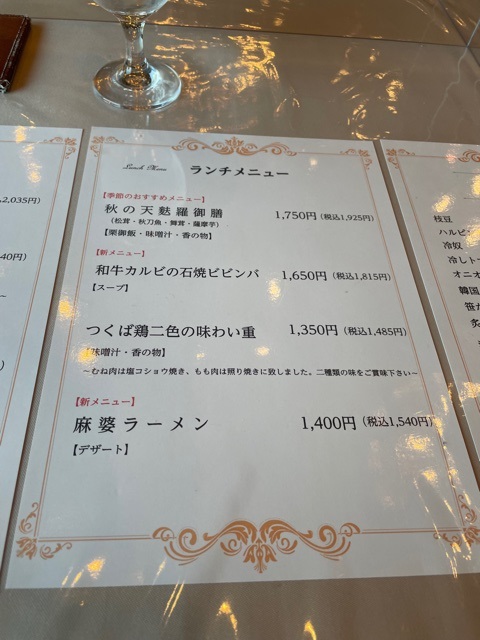 Lunch Menu
ランチメニュー
【季節のおすすめメニュー】
秋の天麩羅御膳 1,750円(税込1,925円)
(松茸・秋刀魚・舞茸・薩摩芋)
【栗御飯・味噌汁・香の物】
【新メニュー】
和牛カルビの石焼ビビンバ 1,650円(税込1,815円)
【スープ】
つくば鶏二色の味わい重 1,350円(税込1,485円)
【味噌汁・香の物】
~むね肉は塩コショウ焼き、もも肉は照り焼きに致しました。二種類の味をご賞味下さい~
【新メニュー】
麻婆ラーメン 1,400円(税込1,540円)
【デザート】
2,035円)
40円)
枝豆
ハルピン
冷奴
冷しト
オニオ
韓国
笹か
炙